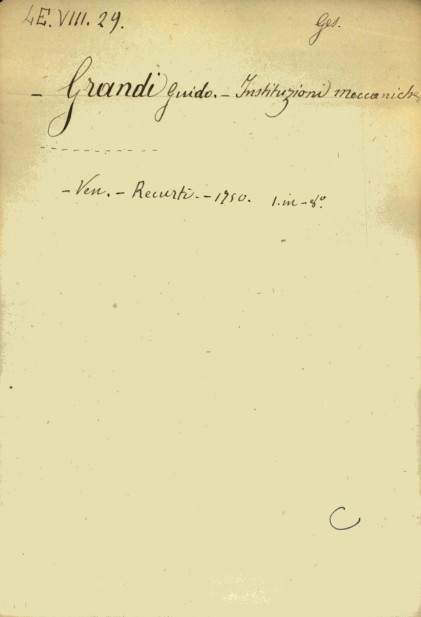 4E. VIII. 29. Ges.
- Grandi Guido. - Instituzioni meccaniche
- Ven. - Recurti. - 1750. 1. in - 8°.
C